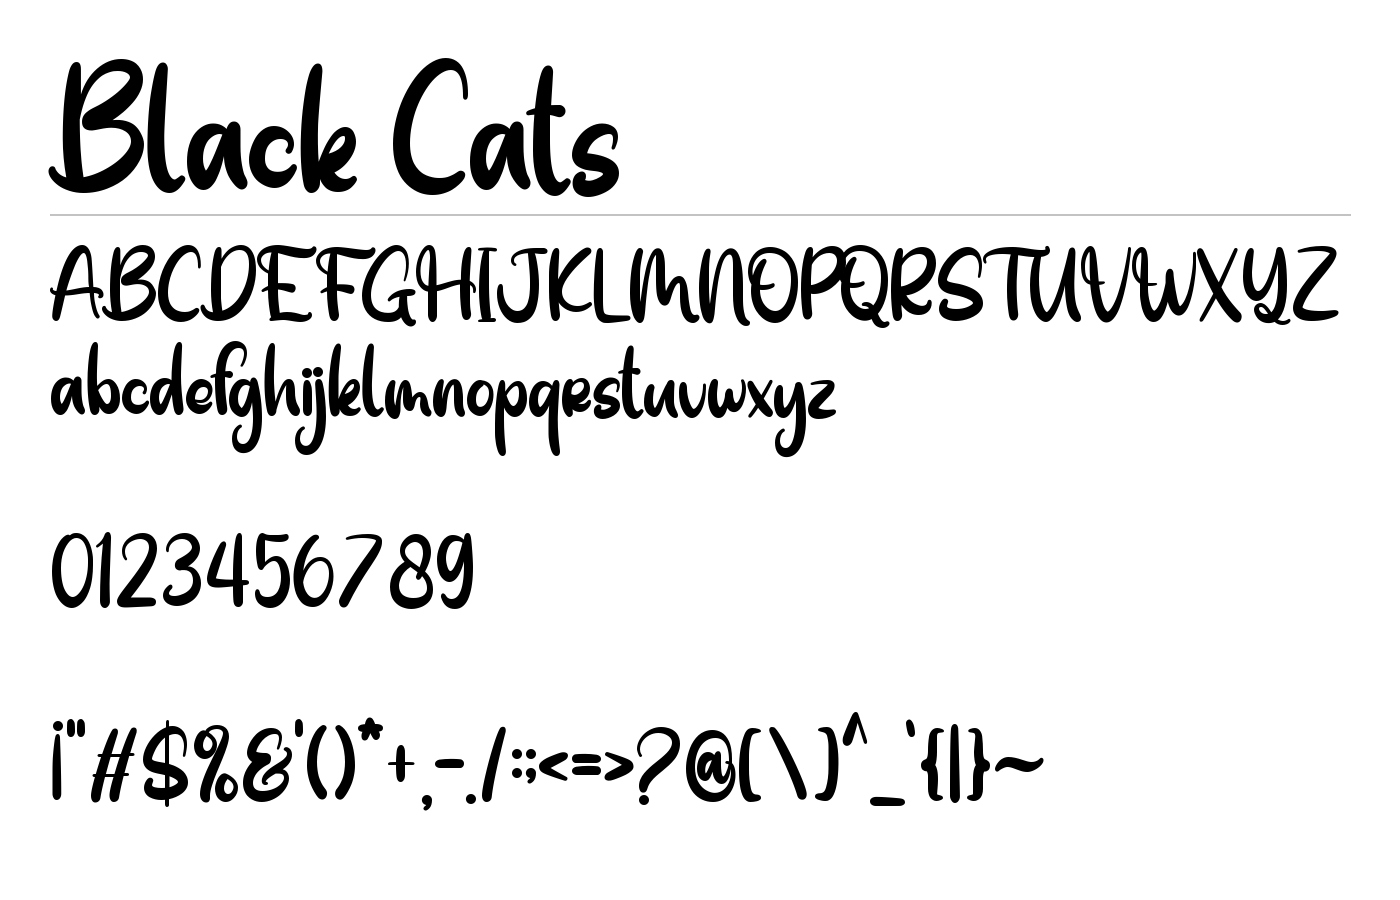 Black Cats
ABCDEFGHIJKLMNOPQRSTUVWXYZ
abcdefghijklmnopqrstuvwxyz
0123456789
¡"#$%&'()*+,-./:;<=>?@[\]^_`{|}~